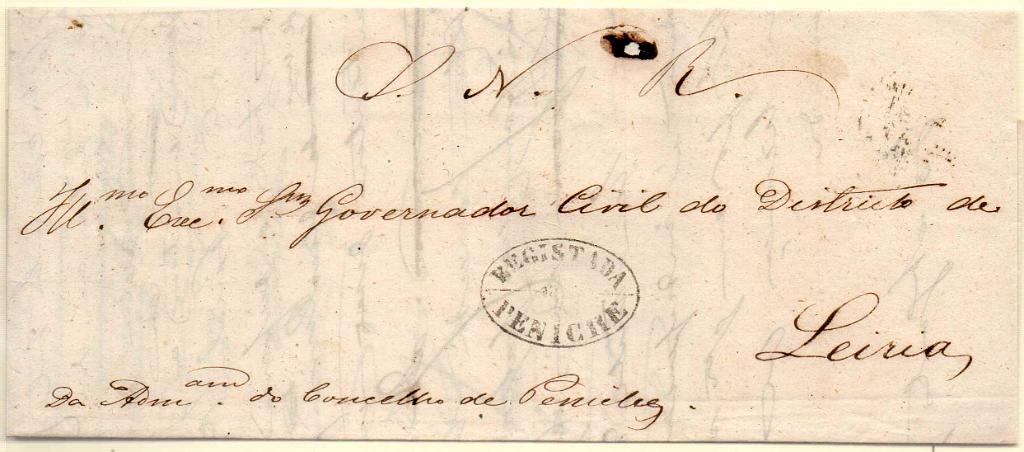 S. N. R.
Ill.mo Exc.mo Snr Governador Civil do Districto de
REGISTADA
PENICHE
Leiria,
Da Adm.am do Concelho de Peniche,